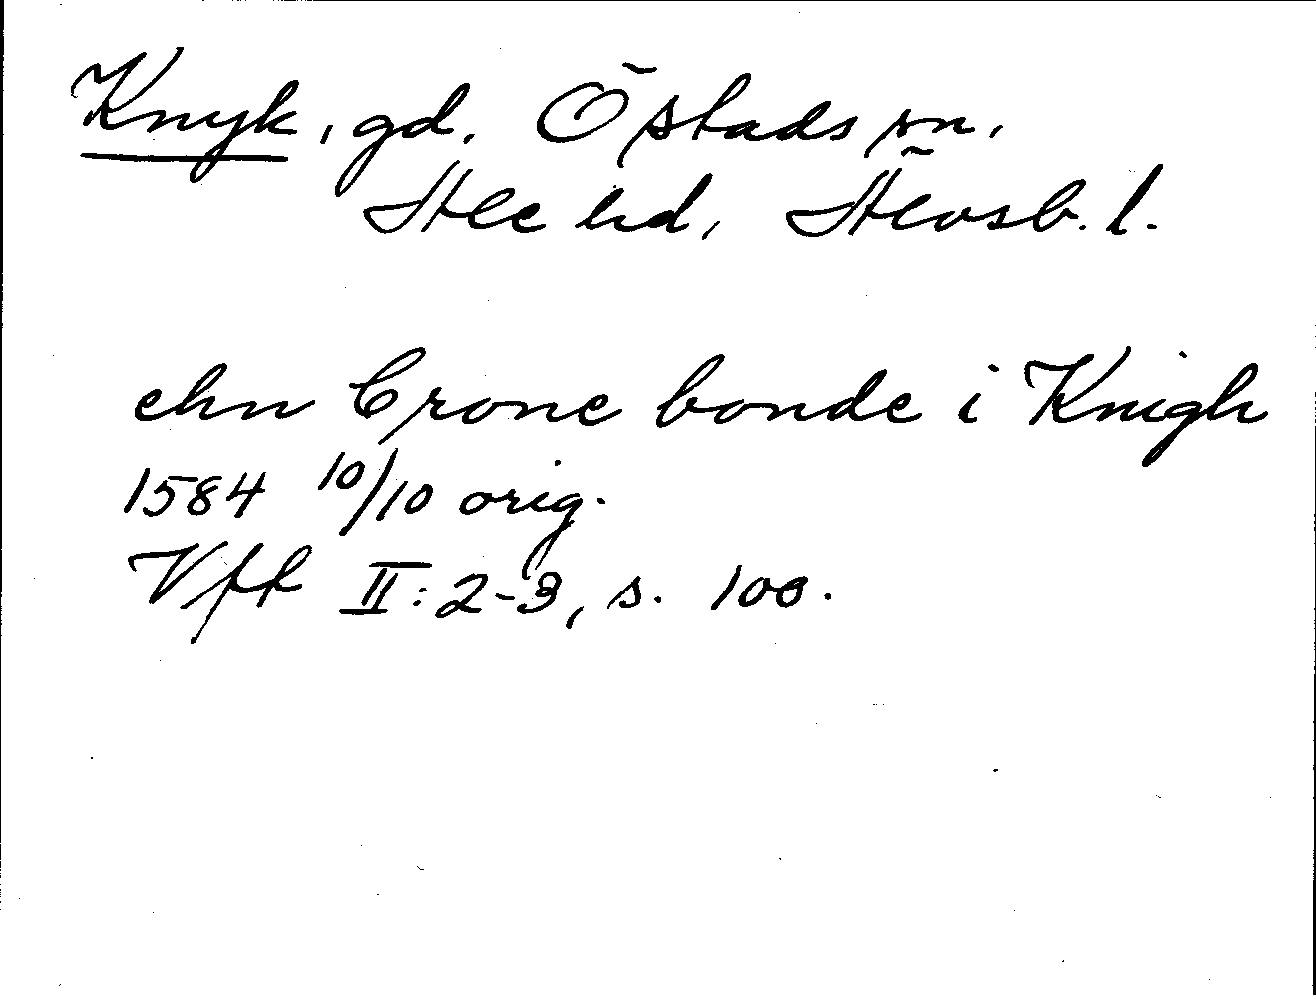 Knyk, gd. Östads sn.
Ale hd, Älvsb. l.
ehn Crone bonde i Knigh
1584 10/10 orig.
Vff II:2-3, s. 100.